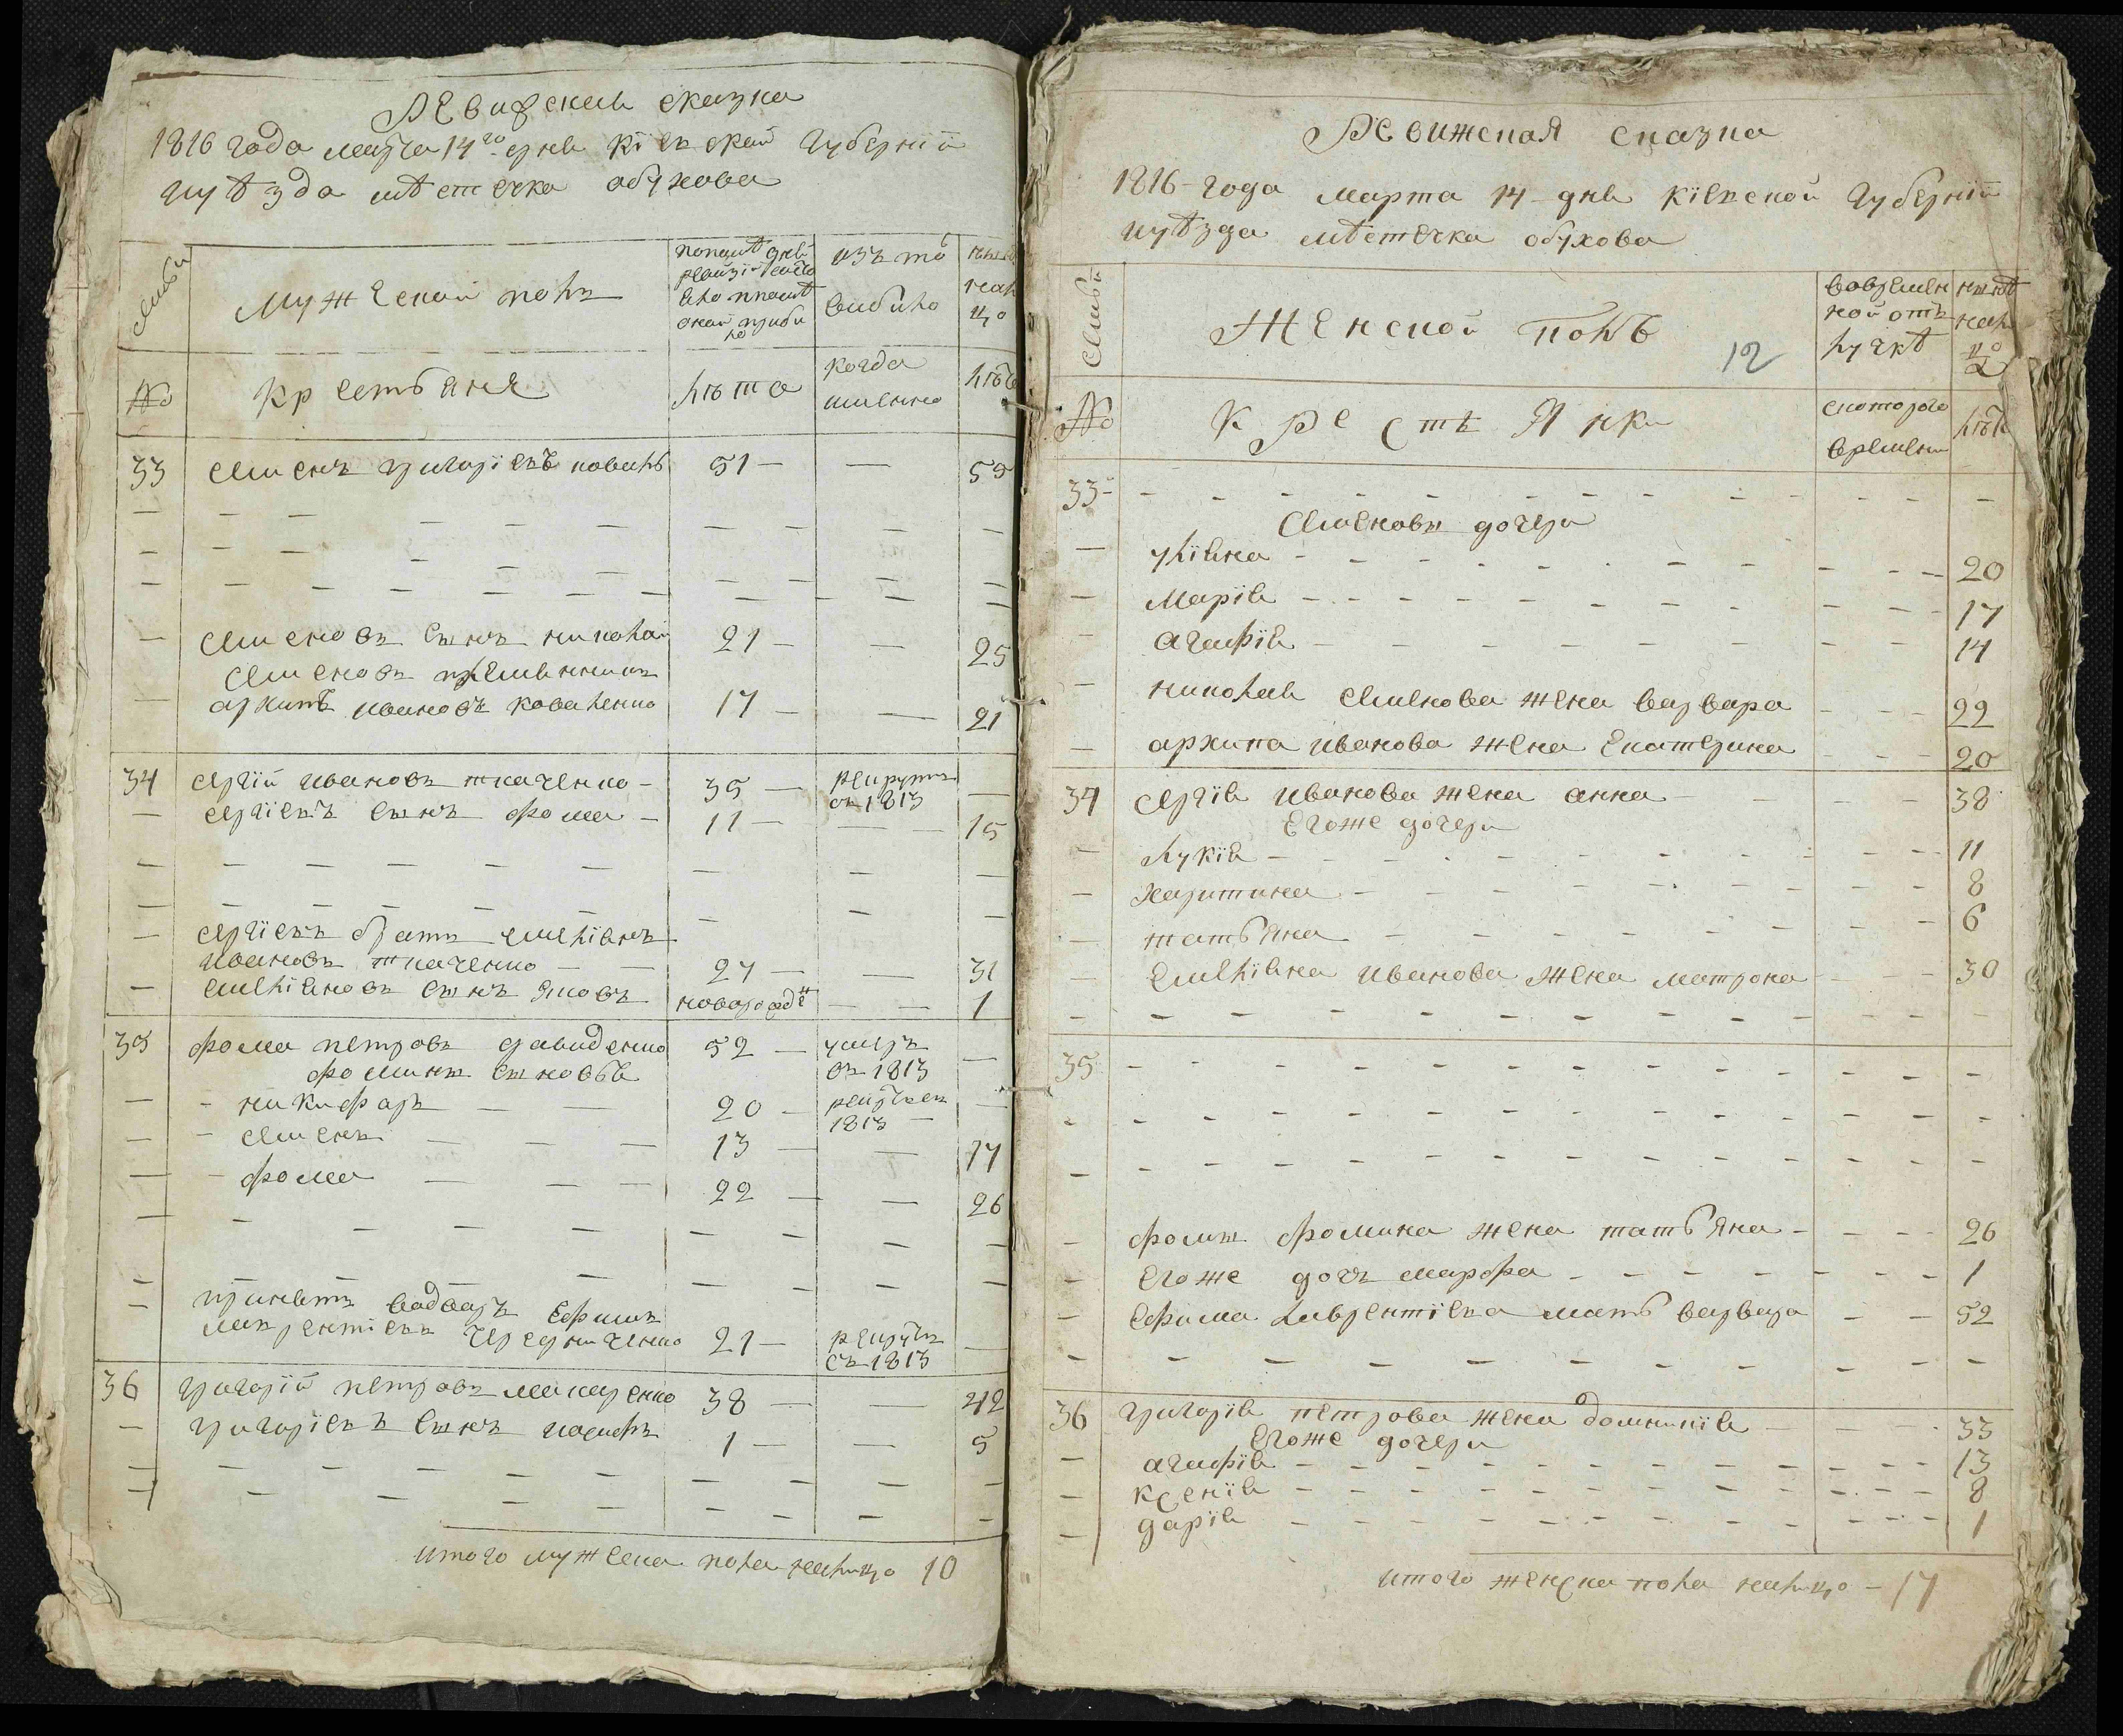 Ревизская сказка
1816 года марта 14го дня Кіевской Губерніи
иуѣзда мѣстечка обухова
семьи
Мужеской полъ
изъ то
выбило
№
Крестьяня
лѣта
когда
именно
лѣта
33 семенъ григоріевъ коваль 51 — — 55
— семеновъ сынъ николай 21 — — 25
семеновъ племянникъ
— архипъ ивановъ коваленко 17 — — 21
34 сергій ивановъ ткаченко — 35 — рекрутъ въ 1813 —
— сергіевъ сынъ фома — 11 — — — 15
— сергіевъ братъ емеліянъ
ивановъ ткаченко — — 27 — — 31
— емеліяновъ сынъ яковъ новорожде — — 1
35 фома петровъ давиденко 52 — умеръ въ 1813 —
фомины сыновья
— - никифоръ — — 20 — рекрутъ въ 1813 — —
— - семенъ — — — 13 — — 17
— - фома — — — 22 — — 26
— принятъ вадворъ Ефимъ
лаврентіевъ чередниченко 21 — рекрутъ въ 1813 —
36 григорій петровъ макаренко 38 — — 42
— григоріевъ сынъ иосифъ 1 — — 5
итого мужеска пола налицо 10
Ревижская сказка
1816 - года марта 14 - дня Кіевской Губерніи
иуѣзда мѣстечка обухова
семьи
Женской полъ
12
вовремен
ной отъ
лучкѣ
нынѣ
нали
цо
№
КРестьЯнки
скоторого
времени
лѣта
33 - - - - - - - - - - - - -
Семеновы дочери
— уліяна - - - - - - - - - - 20
— Марія - - - - - - - - - - 17
— агафія - - - - - - - - - - 14
— николая семенова жена варвара - - - 22
— архипа иванова жена Екатерина - - - 20
34 сергія иванова жена анна - - - - 38
Егоже дочери
— лукія - - - - - - - - - - 11
— харитина - - - - - - - - - 8
— татьяна - - - - - - - - - 6
— емеліяна иванова жена матрона - - - 30
35 - - - - - - - - - - - - -
— фомы фомина жена татьяна - - - - 26
— егоже дочь марфа - - - - - - - - 1
— Ефима лаврентіева мать варвара - - 52
36 григорія петрова жена домникія - - - 33
Егоже дочери
— агафія - - - - - - - - - - 13
— Ксенія - - - - - - - - - - 8
— дарія - - - - - - - - - - 1
итого женска пола налицо - 17